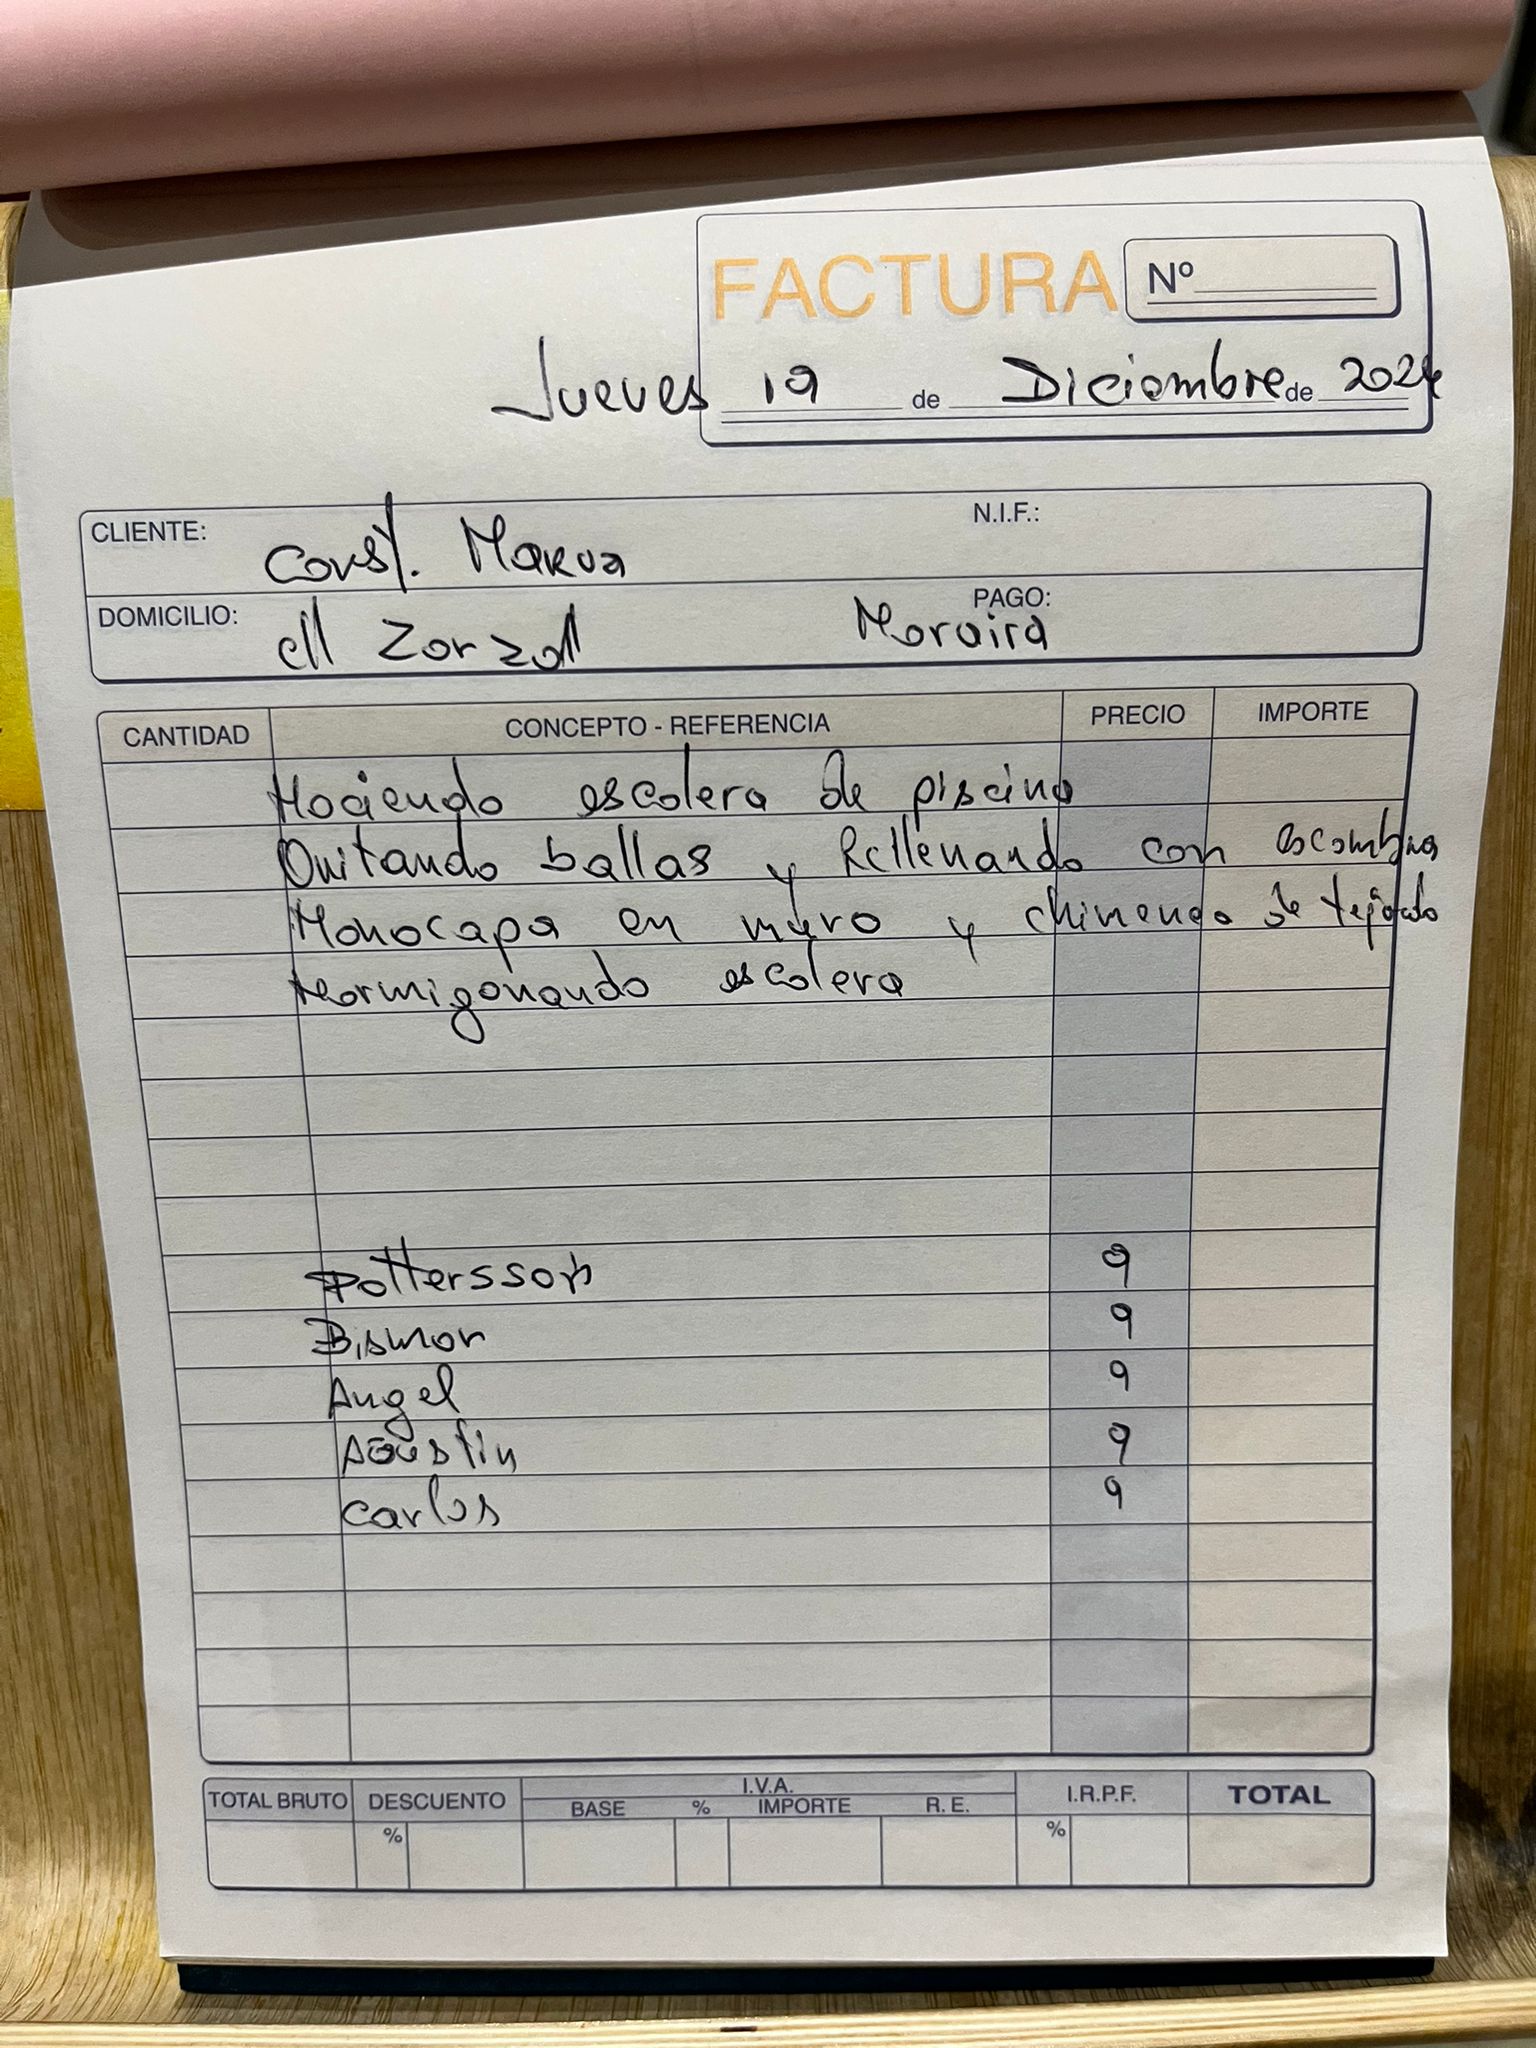 FACTURA Nº
Jueves 19 de Diciembre de 2024
CLIENTE: Const. Marva N.I.F.:
DOMICILIO: cll Zorzal Moraira PAGO:
CANTIDAD CONCEPTO - REFERENCIA PRECIO IMPORTE
Haciendo escalera de piscina
Quitando ballas y Rellenando con escombros
Monocapa en muro y chimenea de tejado
Hormigonando escalera
Pottersson 9
Bismar 9
Angel 9
Agustin 9
Carlos 9
TOTAL BRUTO DESCUENTO I.V.A. I.R.P.F. TOTAL
BASE % IMPORTE R. E.
% %